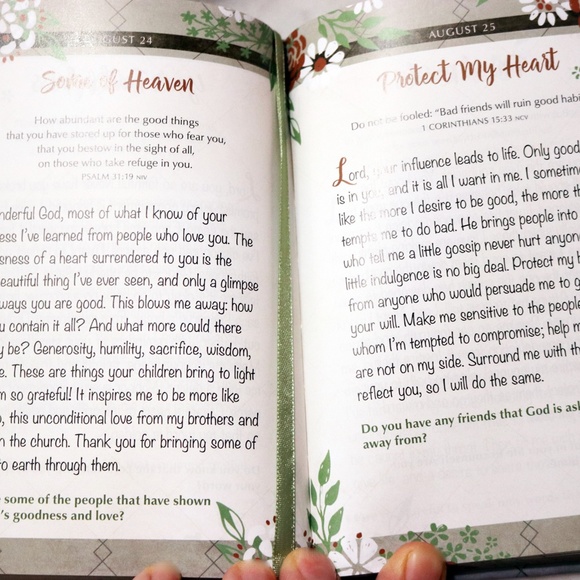 AUGUST 24
Some of Heaven
How abundant are the good things
that you have stored up for those who fear you,
that you bestow in the sight of all,
on those who take refuge in you.
PSALM 31:19 NIV
nderful God, most of what I know of your
ess I've learned from people who love you. The
sness of a heart surrendered to you is the
eautiful thing I've ever seen, and only a glimpse
ways you are good. This blows me away: how
u contain it all? And what more could there
y be? Generosity, humility, sacrifice, wisdom,
e. These are things your children bring to light
m so grateful! It inspires me to be more like
o, this unconditional love from my brothers and
n the church. Thank you for bringing some of
to earth through them.
some of the people that have shown
's goodness and love?
AUGUST 25
Protect My Heart
Do not be fooled: "Bad friends will ruin good habi
1 CORINTHIANS 15:33 NCV
Lord, your influence leads to life. Only good
is in you, and it is all I want in me. I sometim
like the more I desire to be good, the more th
tempts me to do bad. He brings people into
who tell me a little gossip never hurt anyon
little indulgence is no big deal. Protect my h
from anyone who would persuade me to g
your will. Make me sensitive to the people
whom I'm tempted to compromise; help m
are not on my side. Surround me with th
reflect you, so I will do the same.
Do you have any friends that God is ask
away from?